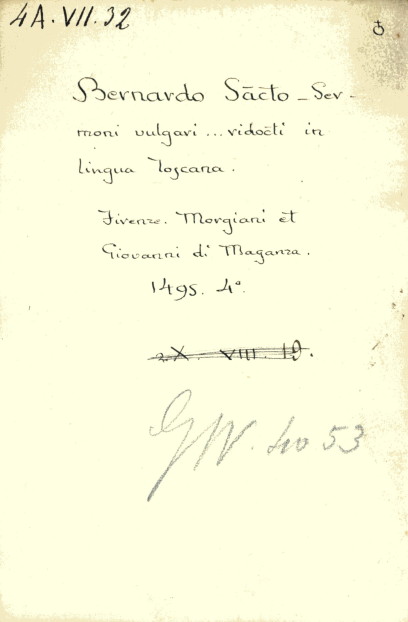 4A.VII.32
♁
Bernardo Sācto - Ser-
moni vulgari ... ridocti in
lingua Toscana.
Firenze. Morgiani et
Giovanni di Maganza.
1495. 4°.
2X. VIII. 19.
GW. 4053